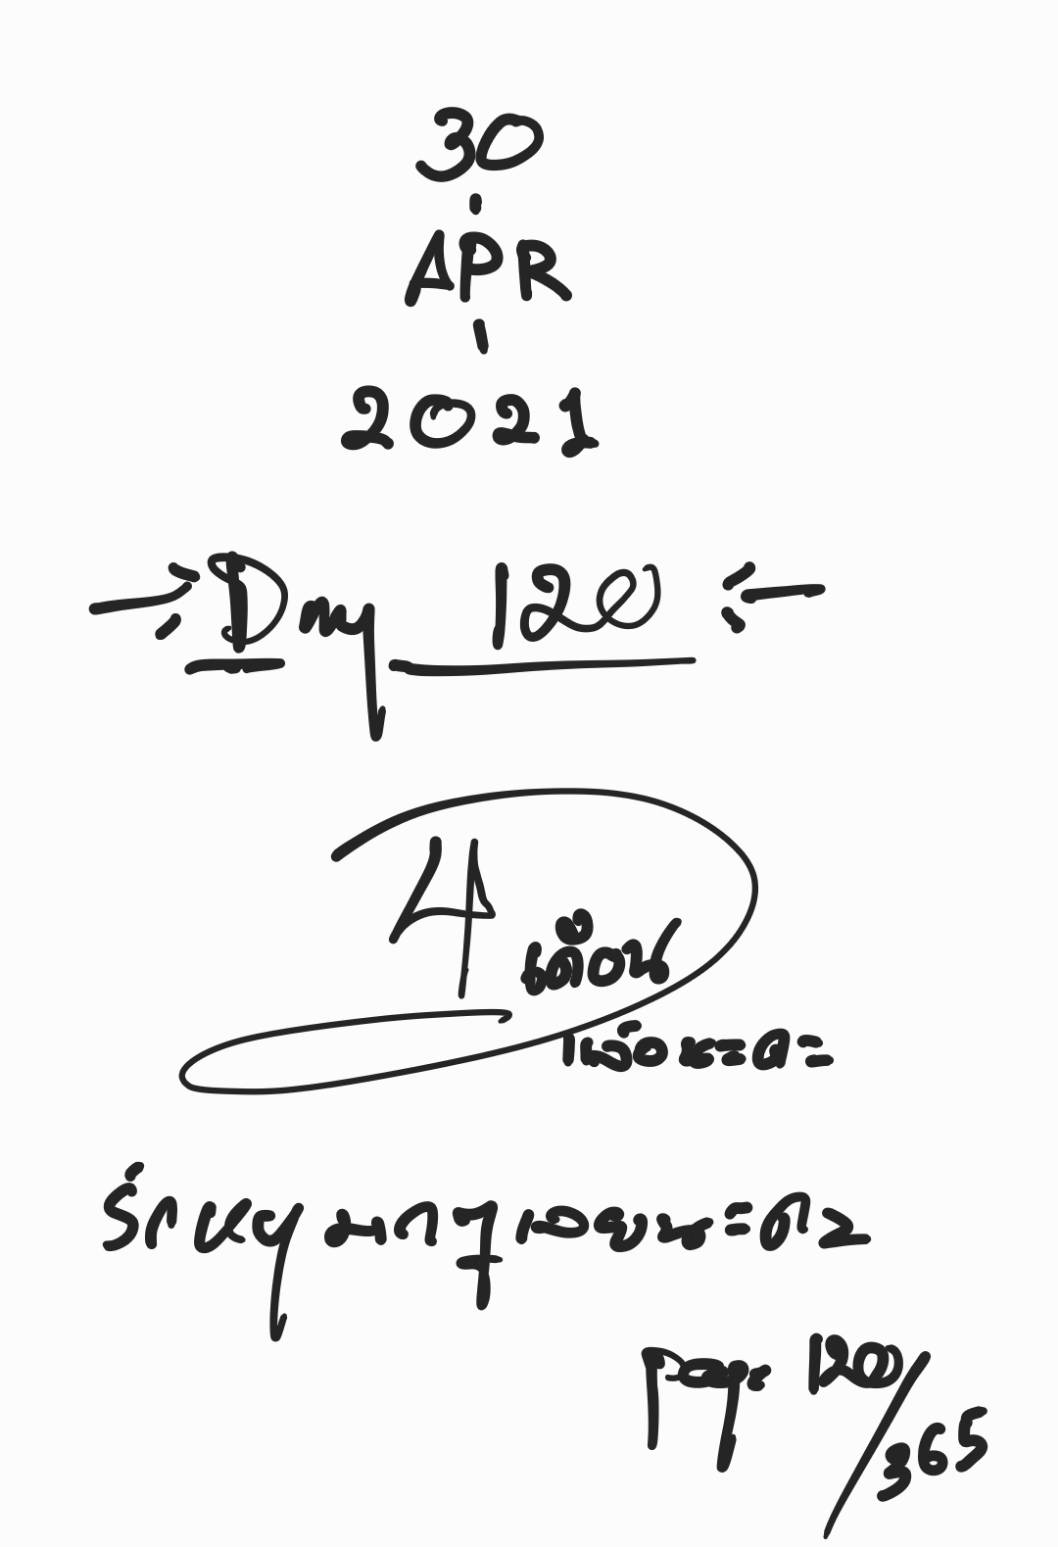 30
-
APR
-
2021
Day 120
4 เดือน
แล้วนะคะ
รักหนูมากๆเลยนะคะ
page 120/365